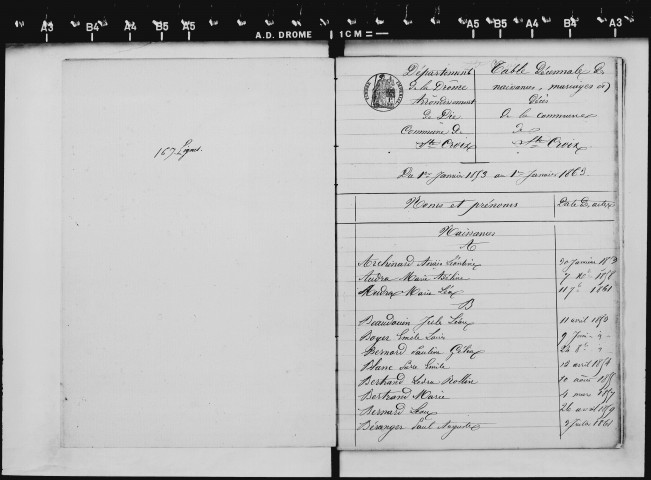 A3 B4 A4 B5 A5
A.D. DROME
1CM
A5 B5 A4 B4 A3
167 Lignes.
Département
de la Drôme
Arrondissement
de Die
Commune de
Ste Croix
Table Décennale de
naissances, mariages et
Décès
de la commune
de
Ste Croix
Du 1er Janvier 1853 au 1er Janvier 1863.
Noms et prénoms Date des actes
Naissances
A
Archinard 30 Janvier 1853
Audra Marie
Marie 1861
B
Beaudouin Jule 11 avril 1853
Boyer Emile Louis 9 Juin
Bernard Pauline
Blanc Emile 12 avril
Bertrand Ledru Rollin 10 août
Bertrand Marie 4 mars 1857
Bernard 26 avril 1859
Béranger Paul Auguste 1861